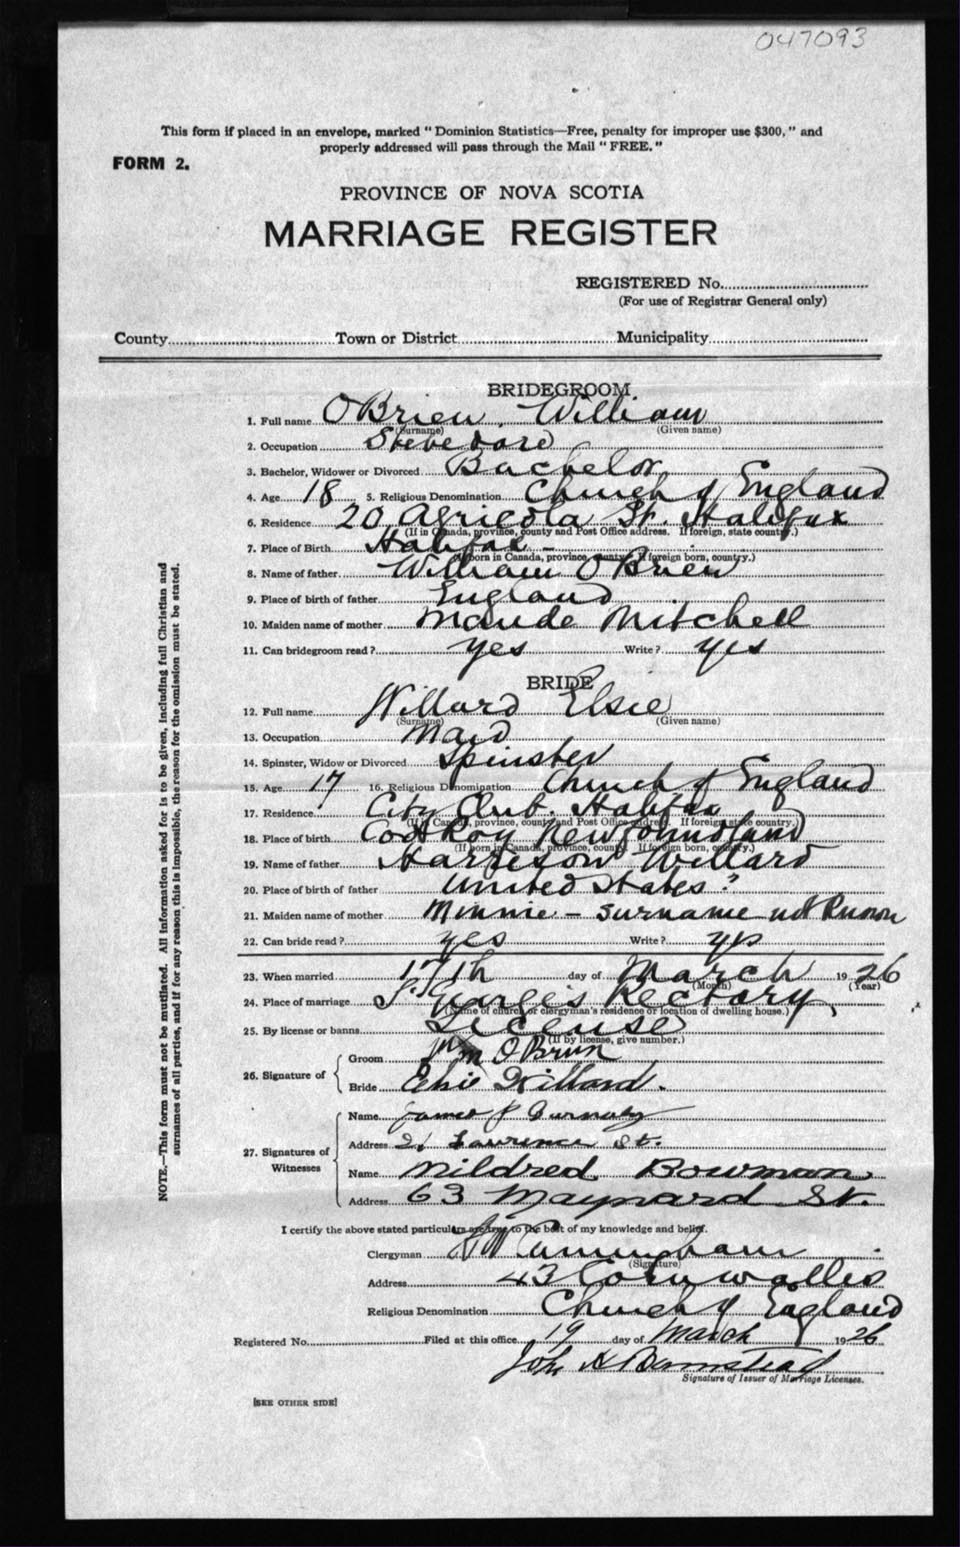 047093
This form if placed in an envelope, marked "Dominion Statistics—Free, penalty for improper use $300," and
properly addressed will pass through the Mail "FREE."
FORM 2.
PROVINCE OF NOVA SCOTIA
MARRIAGE REGISTER
REGISTERED No.
(For use of Registrar General only)
County Town or District Municipality
BRIDEGROOM
1. Full name O'Brien, William
(Surname) (Given name)
2. Occupation Stevedore
3. Bachelor, Widower or Divorced Bachelor
4. Age 18 5. Religious Denomination Church of England
6. Residence 20 Agricola St. Halifax
(If in Canada, province, county and Post Office address. If foreign, state country.)
7. Place of Birth Halifax -
(If born in Canada, province, county. If foreign born, country.)
8. Name of father William O'Brien
9. Place of birth of father England
10. Maiden name of mother Maude Mitchell
11. Can bridegroom read? yes Write? yes
BRIDE
12. Full name Willard Elsie
(Surname) (Given name)
13. Occupation Maid
14. Spinster, Widow or Divorced Spinster
15. Age 17 16. Religious Denomination Church of England
17. Residence City Club. Halifax
(If in Canada, province, county and Post Office address. If foreign state country.)
18. Place of birth Codroy Newfoundland
(If born in Canada, province, county. If foreign born, country.)
19. Name of father Harrison Willard
20. Place of birth of father United States?
21. Maiden name of mother Minnie - surname not known
22. Can bride read? yes Write? yes
23. When married 17th day of March 1926
(Month) (Year)
24. Place of marriage St George's Rectory
(Name of church or clergyman's residence or location of dwelling house.)
25. By license or banns License
(If by license, give number.)
26. Signature of
Groom Wm O'Brien
Bride Elsie Willard.
27. Signatures of Witnesses
Name James
Address 21 Lawrence St.
Name Mildred Bowman
Address 63 Maynard St.
I certify the above stated particulars are true to the best of my knowledge and belief.
Clergyman Cunningham
(Signature)
Address 43 Cornwallis
Religious Denomination Church of England
Registered No. Filed at this office 19 day of March 1926
John H Barnstead
Signature of Issuer of Marriage Licenses.
[SEE OTHER SIDE]
NOTE.—This form must not be mutilated. All information asked for is to be given, including full Christian and
surnames of all parties, and if for any reason this is impossible, the reason for the omission must be stated.